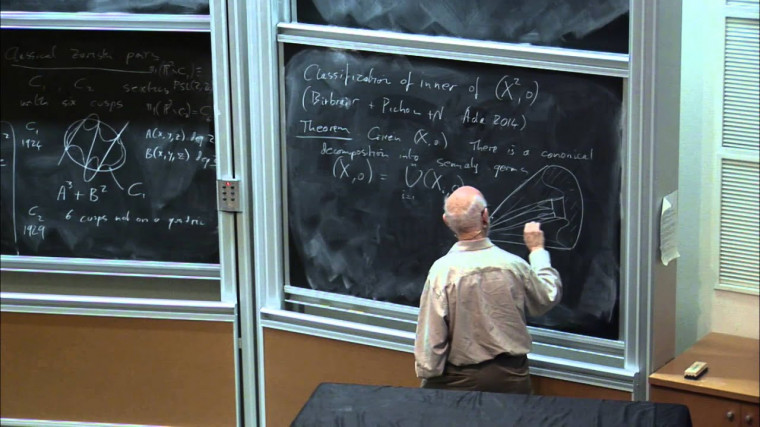 Classical Zariski pairs
C₁, C₂ sextics
with six cusps
π₁(P²\C₁) =
PSL(2,Z)
π₁(P²\C₂) = C₆
C₁
1924
A(x,y,z) deg 2
B(x,y,z) deg 3
A³ + B²
C₁
C₂
1929
6 cusps not on a quadric
Classification of inner of (X²,0)
(Birbrair + Pichon + N Acta 2014)
Theorem Given (X,0) There is a canonical
decomposition into semialg germs
(X,0) = ∪ (Xᵢ,0)
i=1